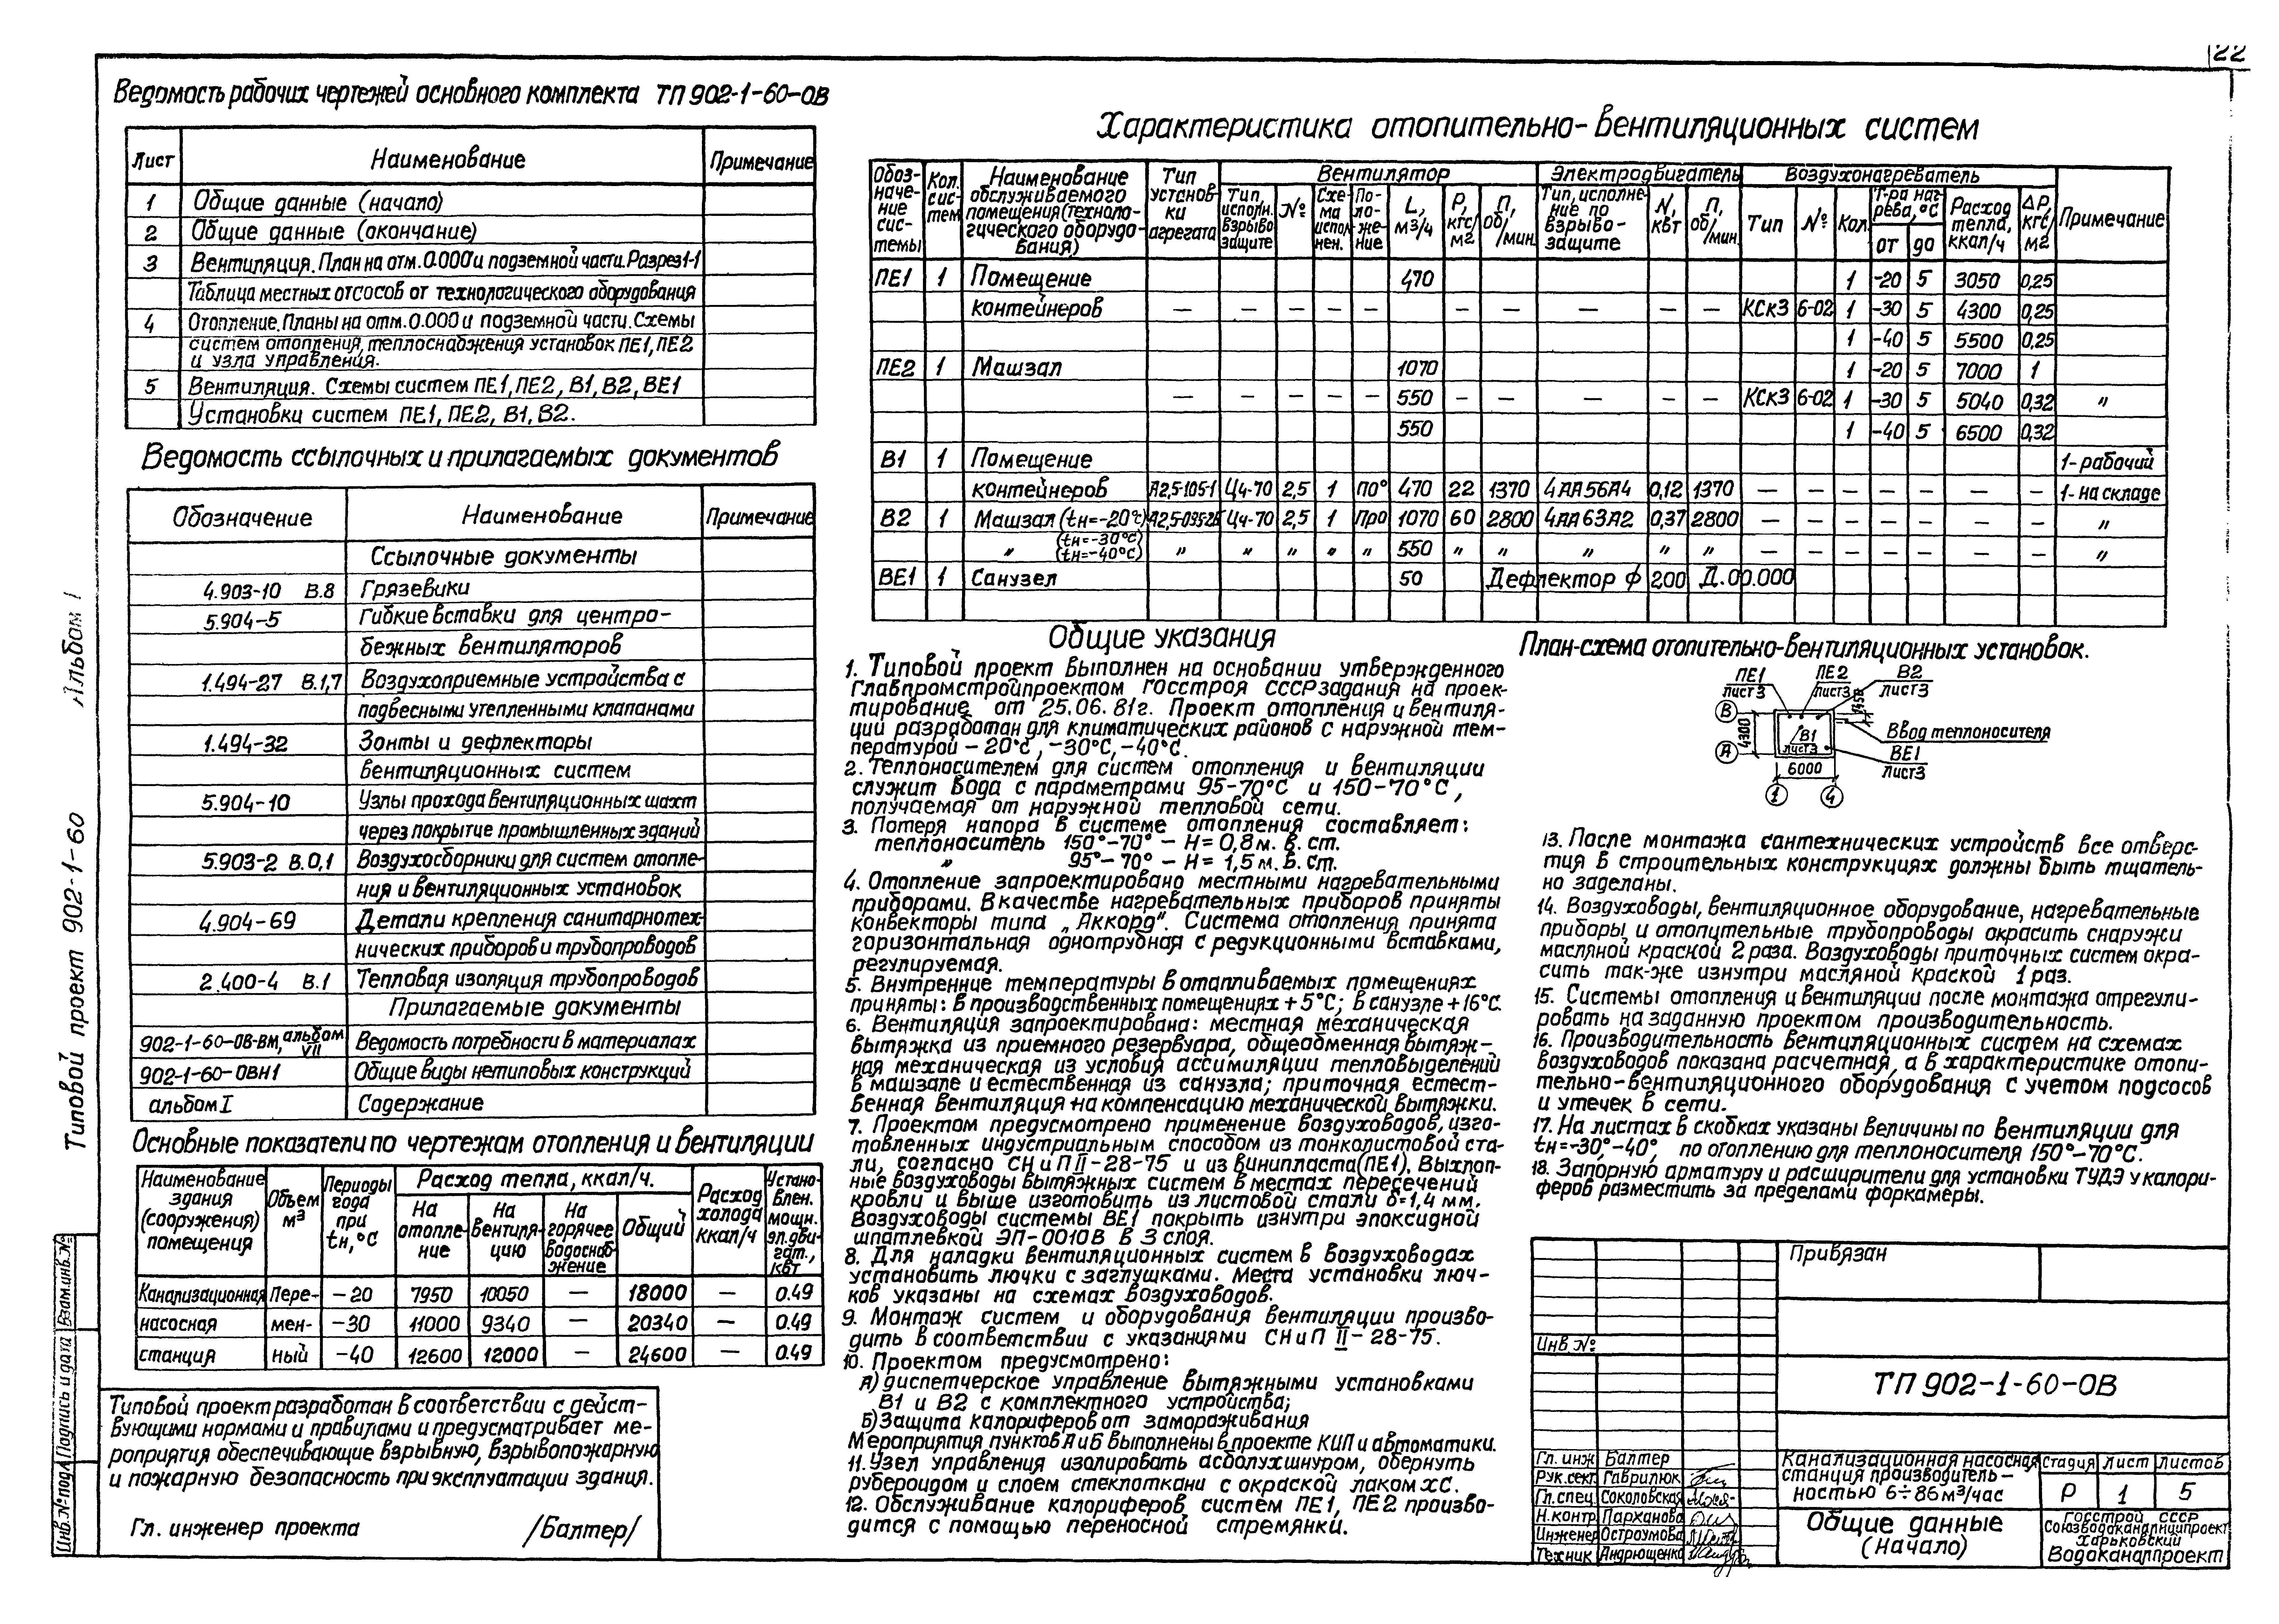 22
Ведомость рабочих чертежей основного комплекта ТП 902-1-60-ОВ
Лист Наименование Примечание
1 Общие данные (начало)
2 Общие данные (окончание)
3 Вентиляция. План на отм. 0.000 и подземной части. Разрез 1-1
Таблица местных отсосов от технологического оборудования
4 Отопление. Планы на отм. 0.000 и подземной части. Схемы
систем отопления, теплоснабжения установок ПЕ1, ПЕ2
и узла управления.
5 Вентиляция. Схемы систем ПЕ1, ПЕ2, В1, В2, ВЕ1
Установки систем ПЕ1, ПЕ2, В1, В2.
Ведомость ссылочных и прилагаемых документов
Обозначение Наименование Примечание
Ссылочные документы
4.903-10 В.8 Грязевики
5.904-5 Гибкие вставки для центро-
бежных вентиляторов
1.494-27 В.1,7 Воздухоприемные устройства с
подвесными утепленными клапанами
1.494-32 Зонты и дефлекторы
вентиляционных систем
5.904-10 Узлы прохода вентиляционных шахт
через покрытие промышленных зданий
5.903-2 В.0,1 Воздухосборники для систем отопле-
ния и вентиляционных установок
4.904-69 Детали крепления санитарнотех-
нических приборов и трубопроводов
2.400-4 В.1 Тепловая изоляция трубопроводов
Прилагаемые документы
902-1-60-ОВ-ВМ, альбом VII Ведомость потребности в материалах
902-1-60-ОВН1 Общие виды нетиповых конструкций
альбом I Содержание
Основные показатели по чертежам отопления и вентиляции
Наименование здания (сооружения) помещения Объем м³ Периоды года при tн, °С Расход тепла, ккал/ч. Расход холода ккал/ч Установлен. мощн. эл.двигат., квт
На отопление На вентиляцию На горячее водоснабжение Общий
Канализационная Пере- -20 7950 10050 — 18000 — 0.49
насосная мен- -30 11000 9340 — 20340 — 0.49
станция ный -40 12600 12000 — 24600 — 0.49
Типовой проект разработан в соответствии с дейст-
вующими нормами и правилами и предусматривает ме-
роприятия обеспечивающие взрывную, взрывопожарную
и пожарную безопасность при эксплуатации здания.
Гл. инженер проекта /Балтер/
Альбом I
Типовой проект 902-1-60
Инв.№подл. Подпись и дата Взам.инв.№
Характеристика отопительно-вентиляционных систем
Обозначение системы Кол. систем Наименование обслуживаемого помещения (технологического оборудования) Тип установки агрегата Вентилятор Электродвигатель Воздухонагреватель Примечание
Тип, исполн. взрывозащите № Схема исполнен. Положение L, м³/ч Р, кгс/м² П, об/мин. Тип, исполнение по взрывозащите N, квт П, об/мин. Тип № Кол. Т-ра нагрева, °С от до Расход тепла, ккал/ч ΔР, кгс/м²
ПЕ1 1 Помещение 470 1 -20 5 3050 0,25
контейнеров — — — — — — — — — — КСк3 6-02 1 -30 5 4300 0,25
1 -40 5 5500 0,25
ПЕ2 1 Машзал 1070 1 -20 5 7000 1
— — — — — 550 — — — — — КСк3 6-02 1 -30 5 5040 0,32 "
550 1 -40 5 6500 0,32
В1 1 Помещение 1-рабочий
контейнеров А2,5-105-1 Ц4-70 2,5 1 П0° 470 22 1370 4АА56А4 0,12 1370 — — — — — — — 1-на складе
В2 1 Машзал (tн=-20°С) Ц4-70 2,5 1 Пр0 1070 60 2800 4АА63А2 0,37 2800 — — — — — — — "
" (tн=-30°С) (tн=-40°С) " " " " " 550 " " " " " — — — — — — — "
ВЕ1 1 Санузел 50 Дефлектор ф 200 Д.00.000
Общие указания
1. Типовой проект выполнен на основании утвержденного
Главпромстройпроектом Госстроя СССР задания на проек-
тирование от 25.06.81г. Проект отопления и вентиля-
ции разработан для климатических районов с наружной тем-
пературой -20°С, -30°С, -40°С.
2. Теплоносителем для систем отопления и вентиляции
служит вода с параметрами 95-70°С и 150-70°С,
получаемая от наружной тепловой сети.
3. Потеря напора в системе отопления составляет:
теплоноситель 150°-70° - Н=0,8м. в. ст.
" 95°-70° - Н= 1,5 м. в. ст.
4. Отопление запроектировано местными нагревательными
приборами. В качестве нагревательных приборов приняты
конвекторы типа „Аккорд". Система отопления принята
горизонтальная однотрубная с редукционными вставками,
регулируемая.
5. Внутренние температуры в отапливаемых помещениях
приняты: в производственных помещениях +5°С; в санузле +16°С.
6. Вентиляция запроектирована: местная механическая
вытяжка из приемного резервуара, общеобменная вытяж-
ная механическая из условия ассимиляции тепловыделений
в машзале и естественная из санузла; приточная естест-
венная вентиляция на компенсацию механической вытяжки.
7. Проектом предусмотрено применение воздуховодов, изго-
товленных индустриальным способом из тонколистовой ста-
ли, согласно СНиП II-28-75 и из винипласта (ПЕ1). Выхлоп-
ные воздуховоды вытяжных систем в местах пересечений
кровли и выше изготовить из листовой стали δ=1,4 мм.
Воздуховоды системы ВЕ1 покрыть изнутри эпоксидной
шпатлевкой ЭП-0010В в 3 слоя.
8. Для наладки вентиляционных систем в воздуховодах
установить лючки с заглушками. Места установки люч-
ков указаны на схемах воздуховодов.
9. Монтаж систем и оборудования вентиляции произво-
дить в соответствии с указаниями СНиП II-28-75.
10. Проектом предусмотрено:
А) диспетчерское управление вытяжными установками
В1 и В2 с комплектного устройства;
Б) Защита калориферов от замораживания
Мероприятия пунктов А и Б выполнены в проекте КИП и автоматики.
11. Узел управления изолировать асболухшнуром, обернуть
рубероидом и слоем стеклоткани с окраской лаком ХС.
12. Обслуживание калориферов систем ПЕ1, ПЕ2 произво-
дится с помощью переносной стремянки.
План-схема отопительно-вентиляционных установок.
ПЕ1 лист3 ПЕ2 лист3 В2 лист3
В 4300 А
В1 лист3
Ввод теплоносителя
ВЕ1 лист3
6000
1 4
13. После монтажа сантехнических устройств все отверс-
тия в строительных конструкциях должны быть тщатель-
но заделаны.
14. Воздуховоды, вентиляционное оборудование, нагревательные
приборы и отопительные трубопроводы окрасить снаружи
масляной краской 2 раза. Воздуховоды приточных систем окра-
сить так-же изнутри масляной краской 1 раз.
15. Системы отопления и вентиляции после монтажа отрегули-
ровать на заданную проектом производительность.
16. Производительность вентиляционных систем на схемах
воздуховодов показана расчетная, а в характеристике отопи-
тельно-вентиляционного оборудования с учетом подсосов
и утечек в сети.
17. На листах в скобках указаны величины по вентиляции для
tн=-30°,-40°, по отоплению для теплоносителя 150°-70°С.
18. Запорную арматуру и расширители для установки ТУДЭ у калори-
феров разместить за пределами форкамеры.
Привязан
Инв.№
ТП 902-1-60-ОВ
Гл. инж Балтер
Рук.сект. Гаврилюк
Гл.спец. Соколовская
Н.контр. Парханова
Инженер Остроумова
Техник Андрющенко
Канализационная насосная
станция производитель-
ностью 6÷86 м³/час
Стадия Лист Листов
Р 1 5
Общие данные
(начало)
Госстрой СССР
Союзводоканалниипроект
Харьковский
Водоканалпроект